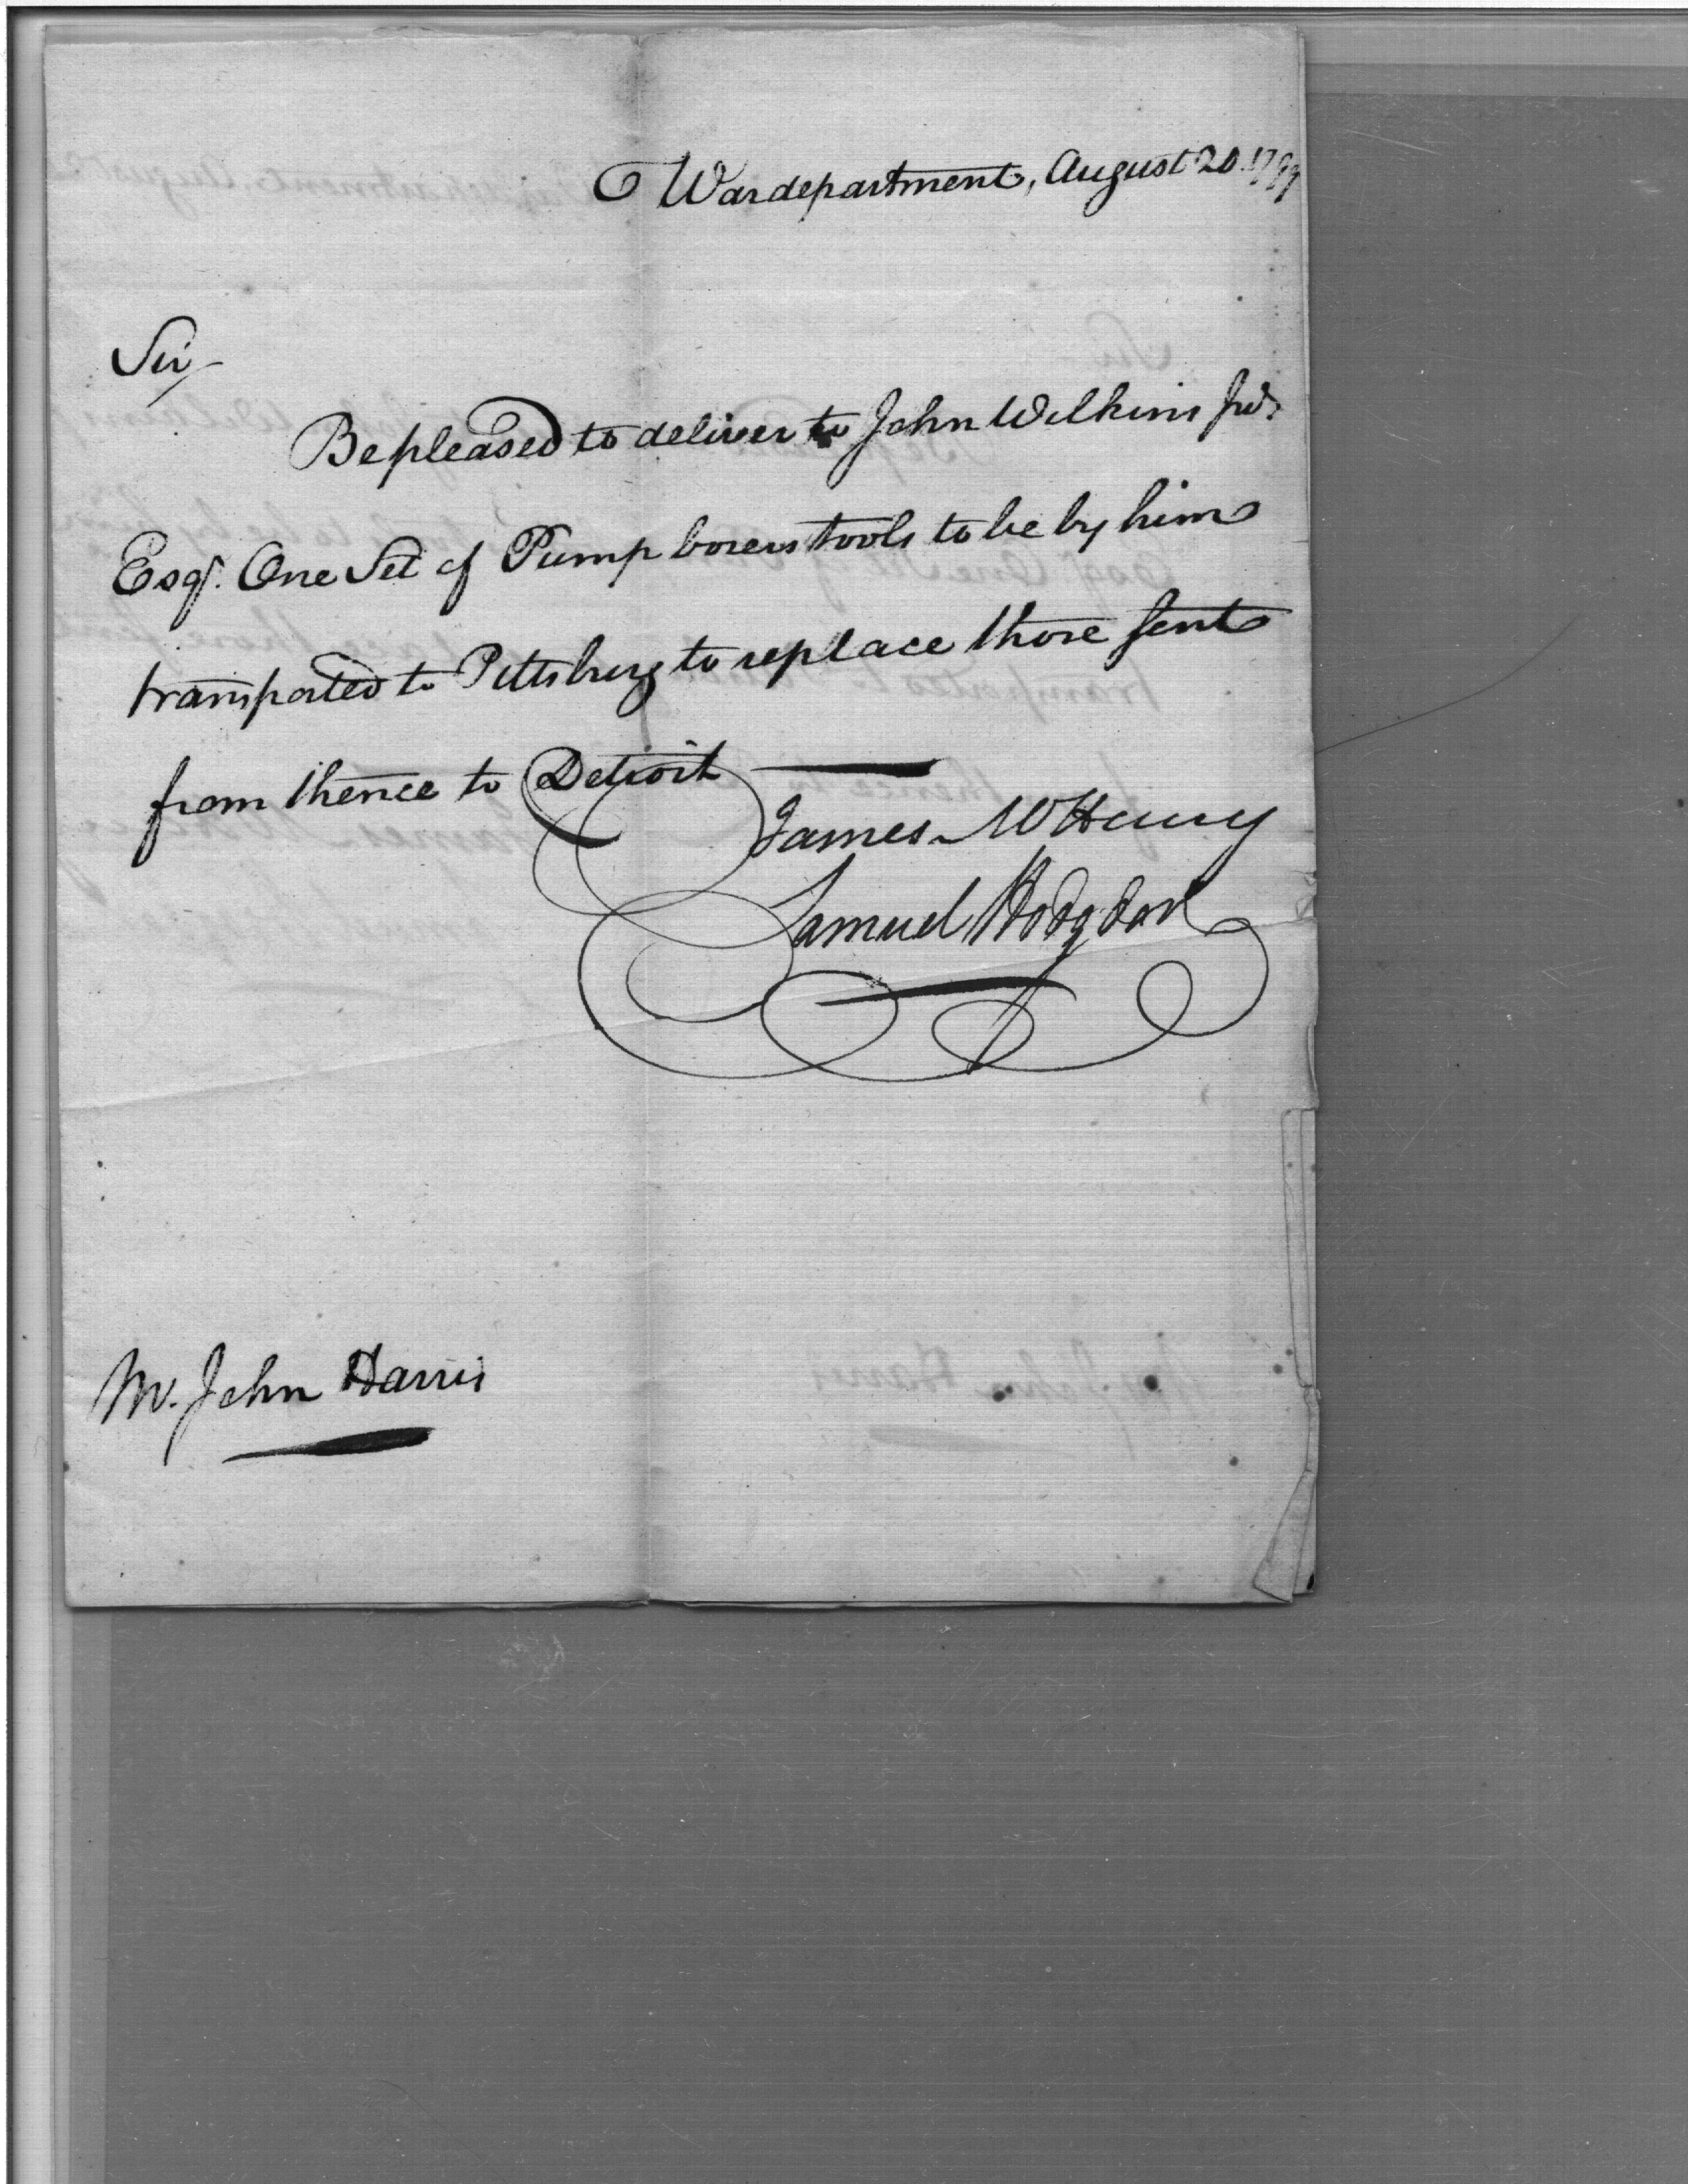 War department, August 20. 1799
Sir
Be pleased to deliver to John Wilkins Jur.
Esqr. One Set of Pump borers tools to be by him
transported to Pittsburg to replace those sent
from thence to Detroit
James McHenry
Samuel Hodgdon
Mr. John Harris